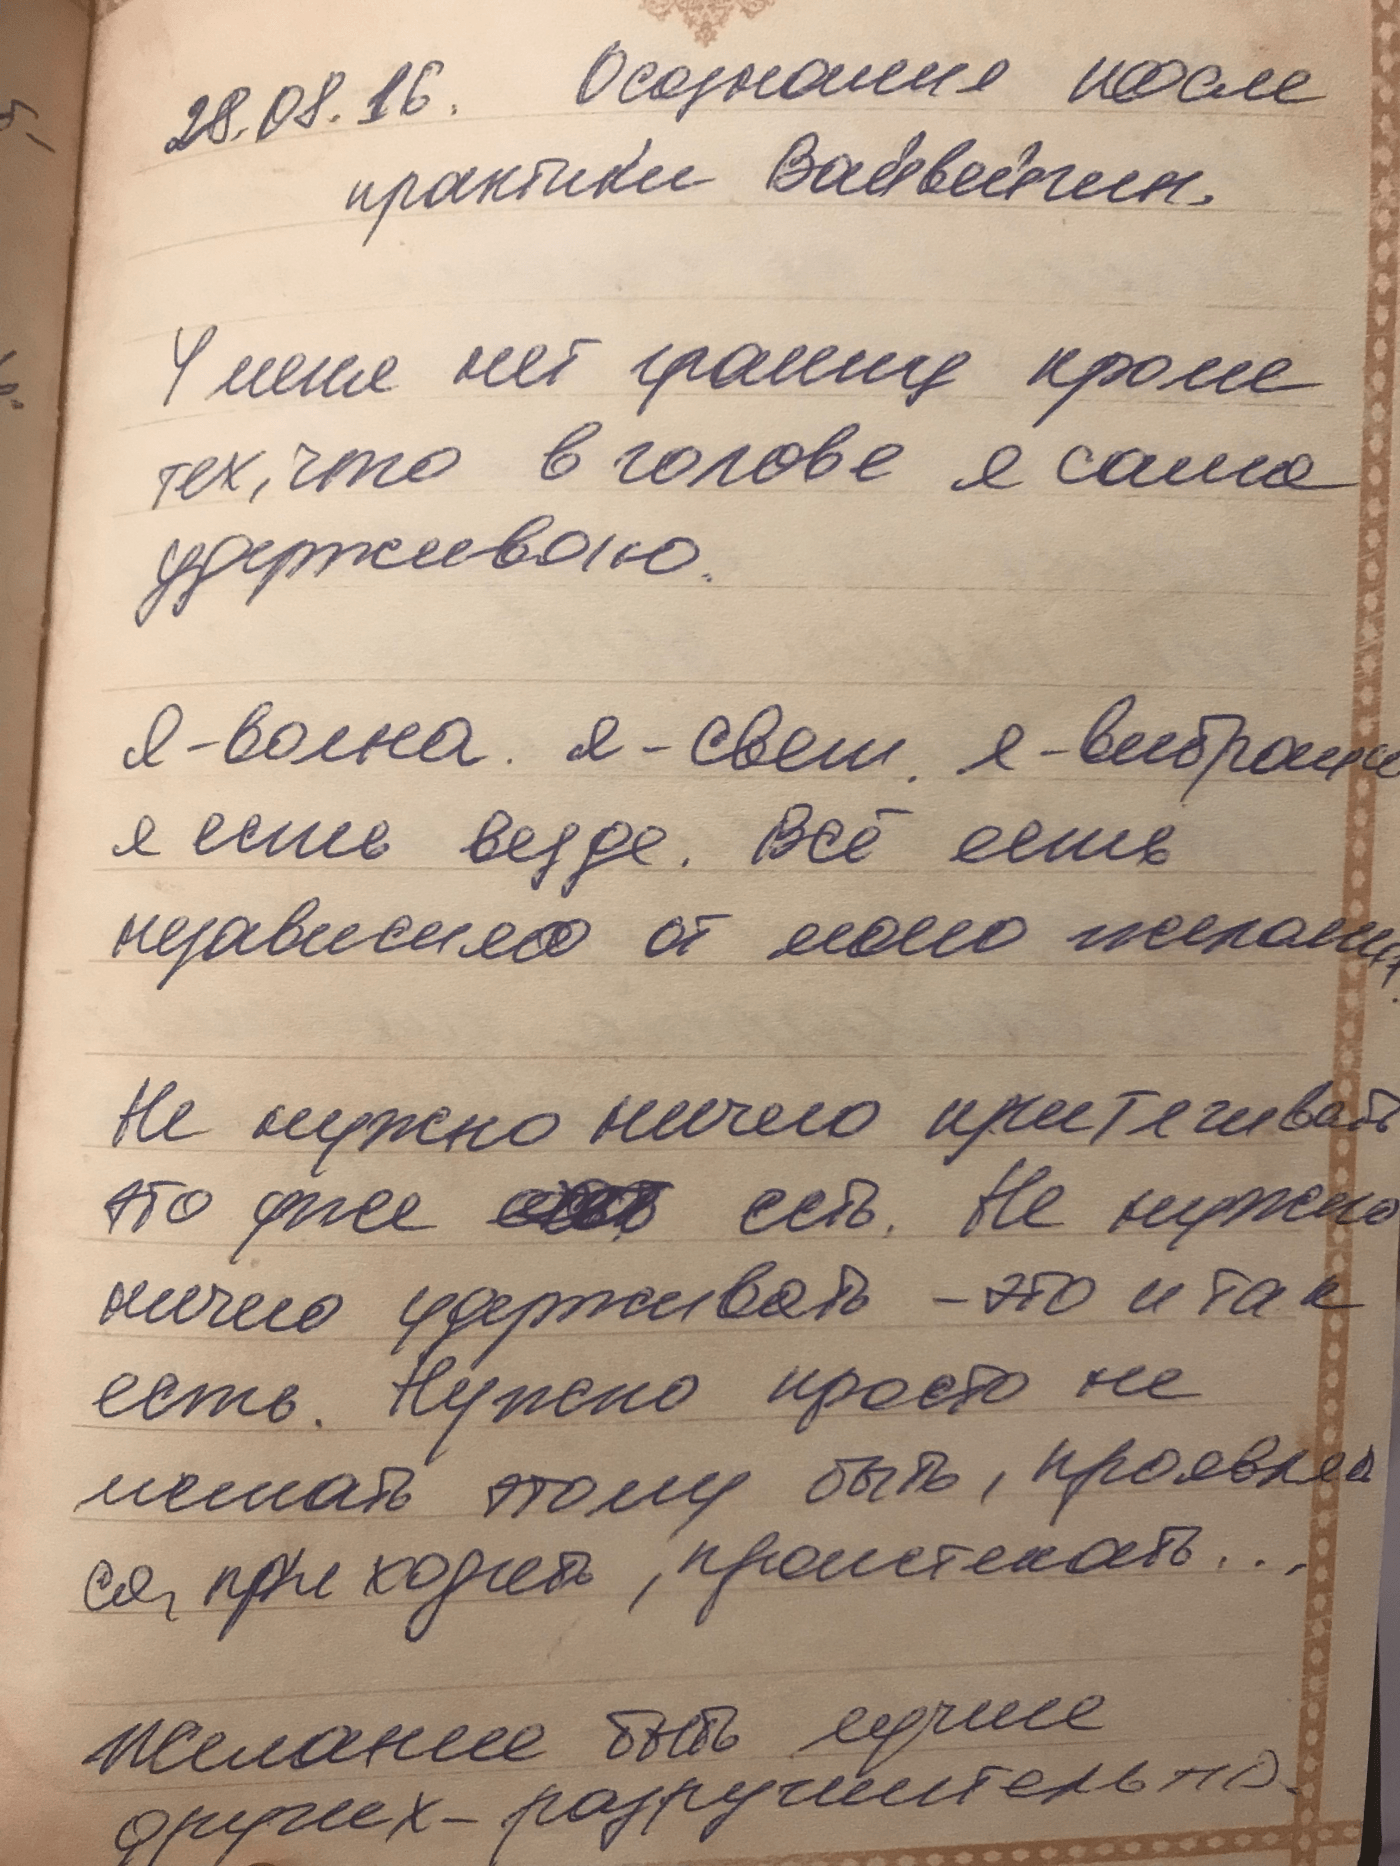 28.08.16. Осознания после
практики Вайвейшин.
У меня нет границ кроме
тех, что в голове я сама
удерживаю.
Я - волна. Я - свет. Я - вибрация
я есть везде. Всё есть
независимо от моего желания.
Не нужно ничего притягивать
это уже есть. Не нужно
ничего удерживать - это и так
есть. Нужно просто не
мешать этому быть, проявля
ся, приходить, проистекать...
Желание быть лучше
других - разрушительно.